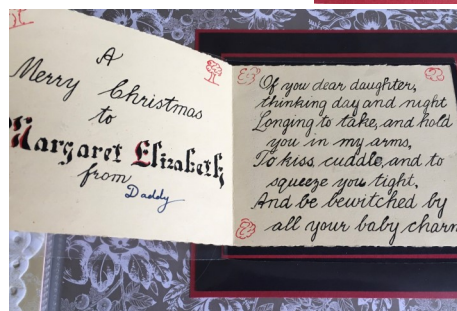 A
Merry Christmas
to
Margaret Elizabeth
from
Daddy
Of you dear daughter,
thinking day and night
Longing to take, and hold
you in my arms,
To kiss, cuddle, and to
squeeze you tight,
And be bewitched by
all your baby charm